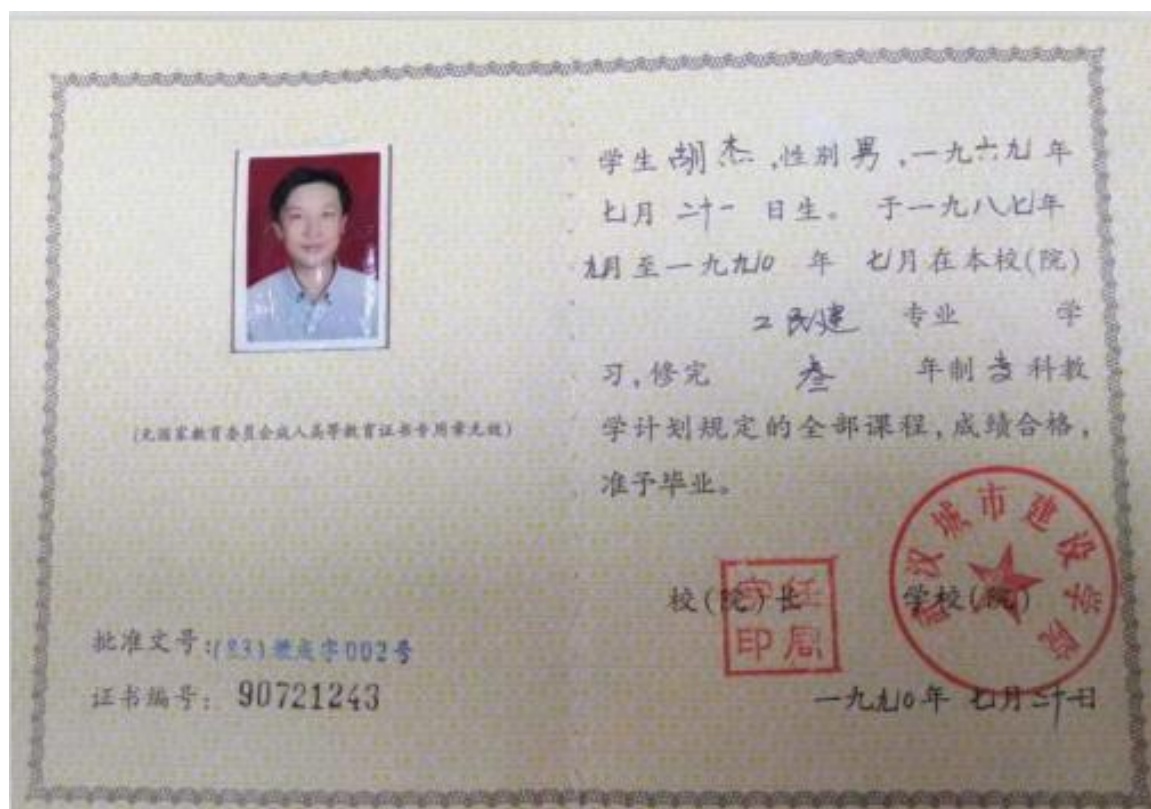 (无国家教育委员会成人高等教育证书专用章无效)
批准文号:(83)教成字002号
证书编号: 90721243
学生 胡杰 ,性别 男 ,一九六九 年
七月 二十一 日生。 于一九八七年
九月至一九九0 年 七月在本校(院)
工民建 专业 学
习,修完 叁 年制专科教
学计划规定的全部课程,成绩合格,
准予毕业。
校(院)长 学校(院)
武汉城市建设学院
一九九0年 七月二十日